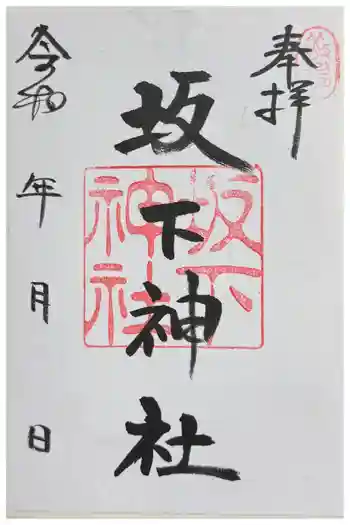 奉拝
坂下神社
坂下
神社
令和 年 月 日